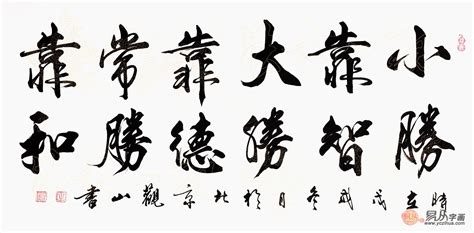 小勝
靠智
大勝
靠德
常勝
靠和
時在戊戌冬月於北京觀山書
易从字画
www.yczihua.com